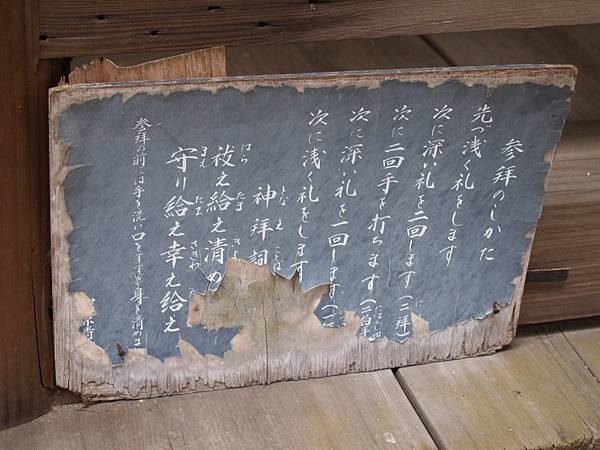 参拝のしかた
先づ浅く礼をします
次に深い礼を二回します(二拝)
次に二回手を打ちます(二拍手
次に深い礼を一回します(一
次に浅く礼をします
神拝詞
祓え給え清め
守り給え幸え給え
参拝の前には手を洗い口をすすぎ身を清めま